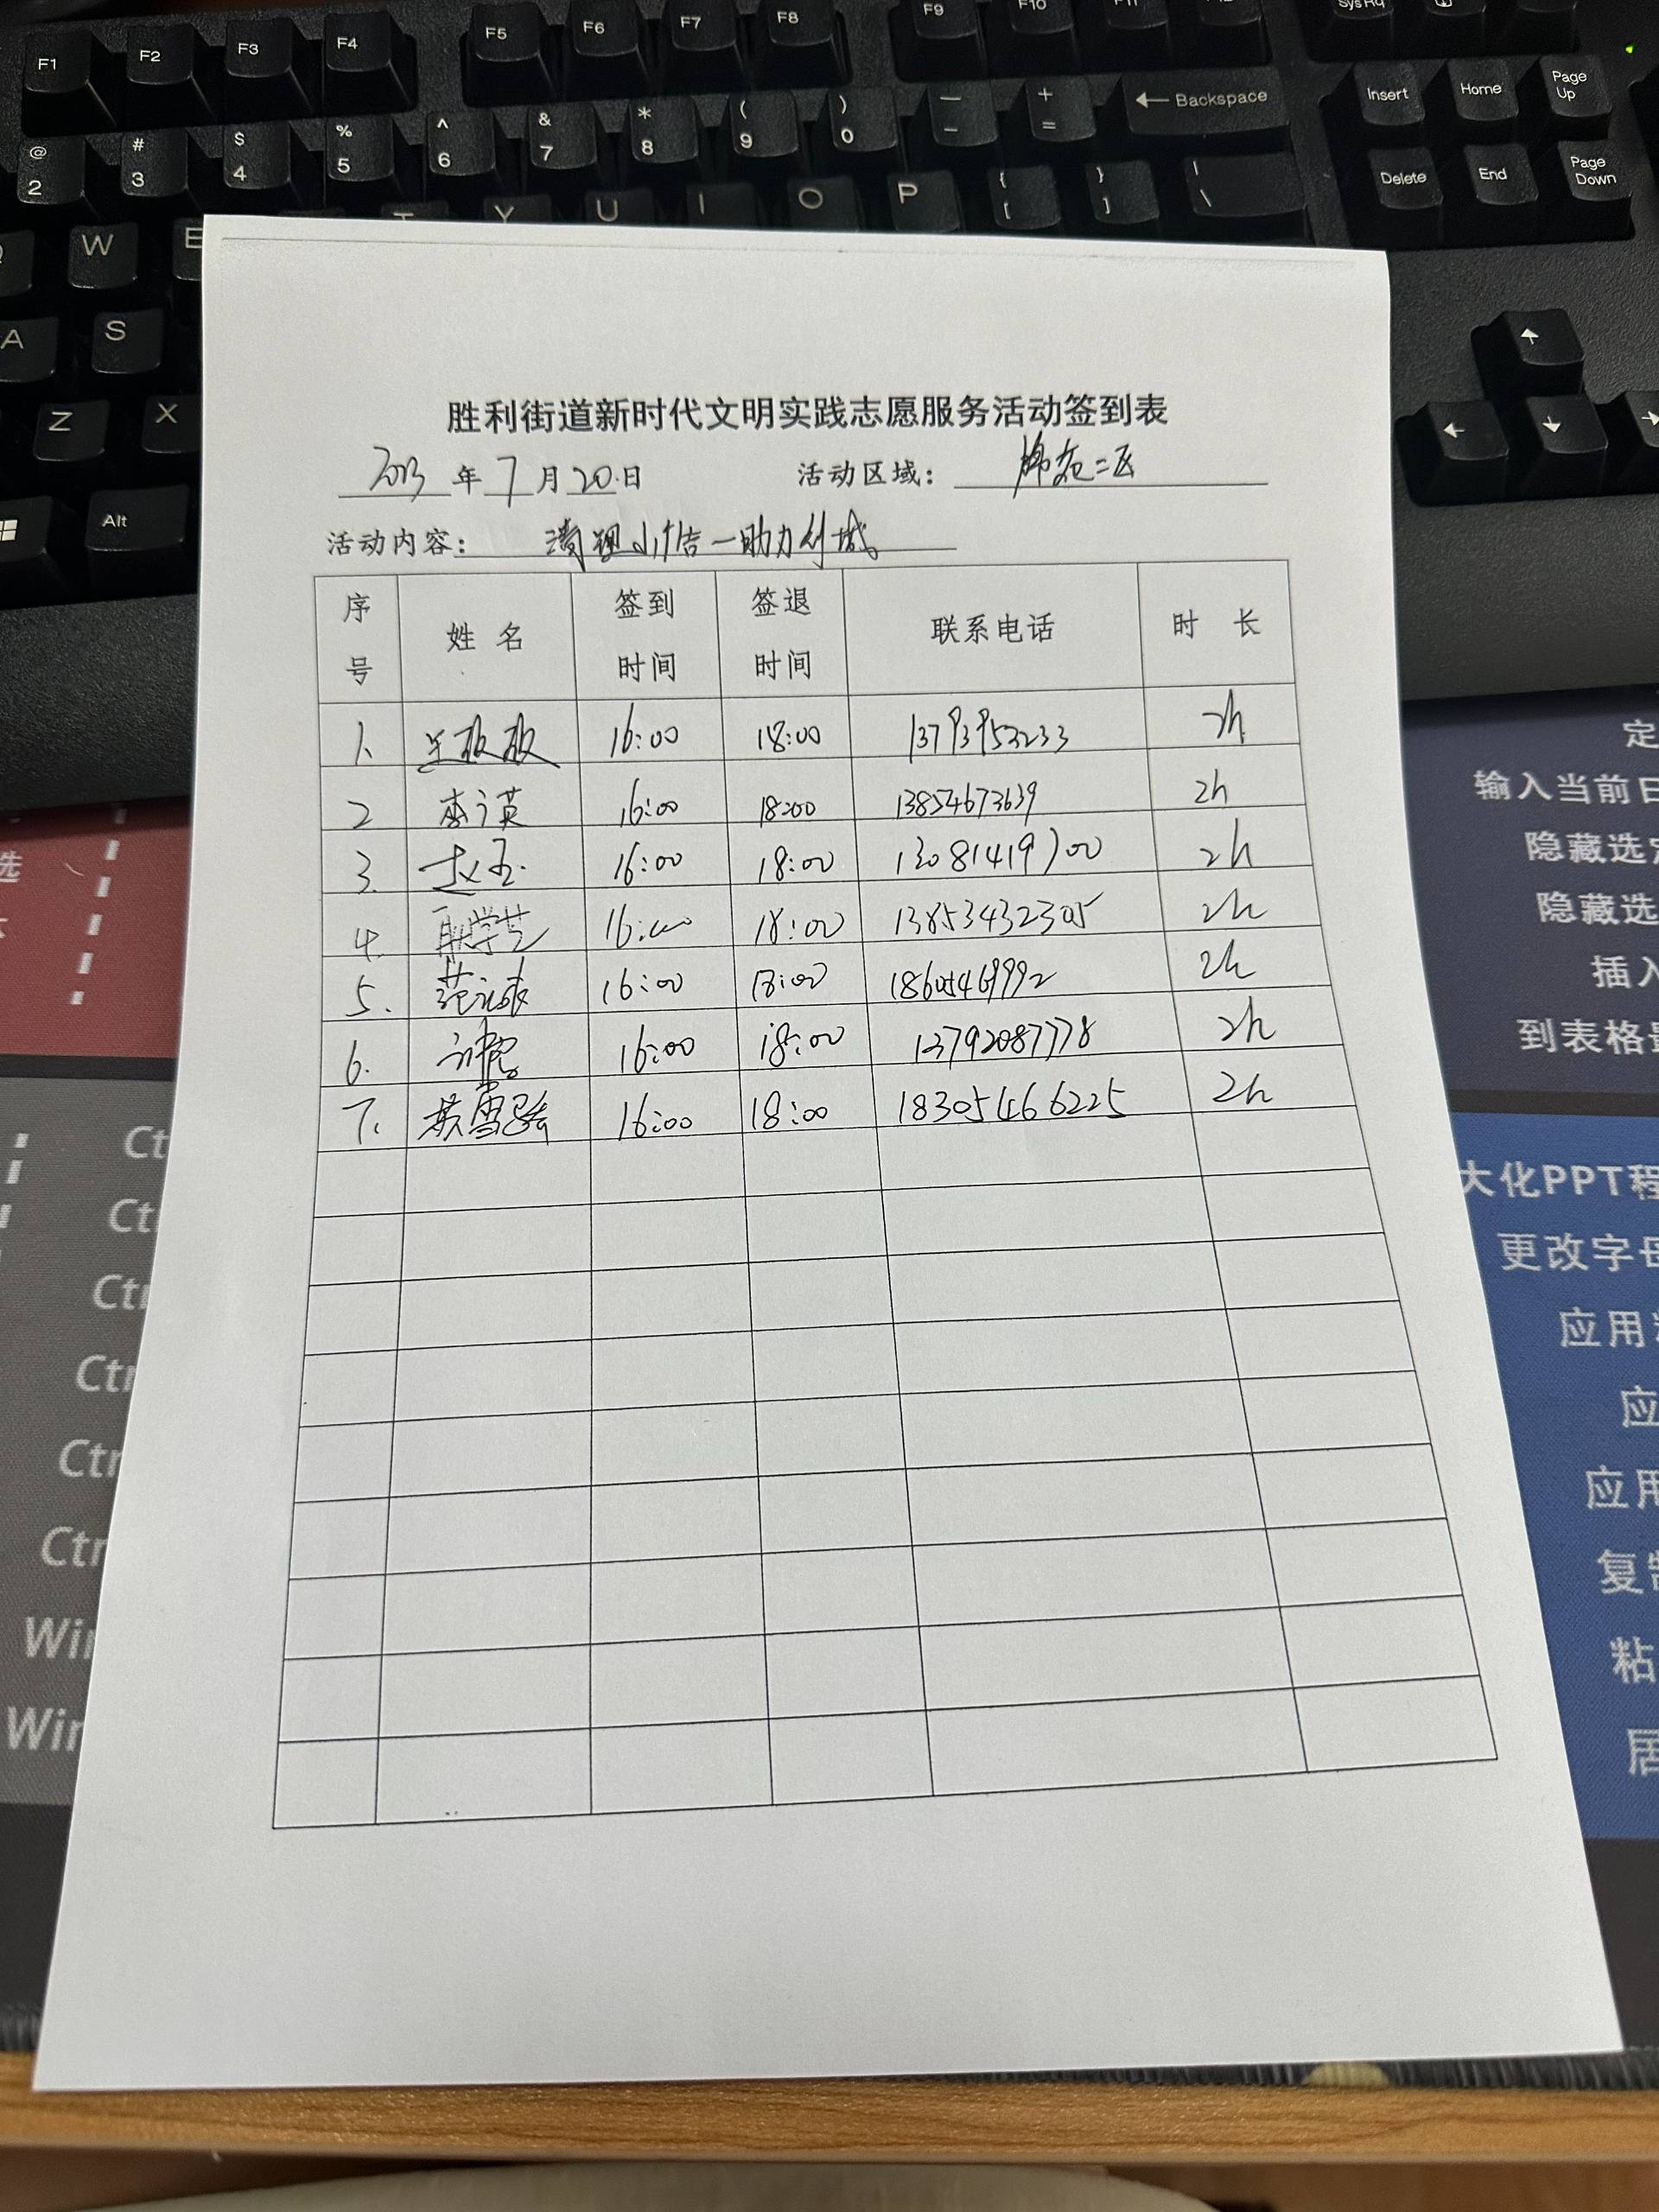 F1 F2 F3 F4 F5 F6 F7 F8 F9 F10
@ 2 # 3 $ 4 % 5 ^ 6 & 7 * 8 ( 9 ) 0 — - + = ← Backspace Insert Home Page Up
W E T Y U I O P { [ } ] | \ Delete End Page Down
A S
Z X
Alt
胜利街道新时代文明实践志愿服务活动签到表
2023 年 7 月 20 日 活动区域： 二区
活动内容： 清理小广告一助力创城
序号 姓名 签到时间 签退时间 联系电话 时长
1. 16:00 18:00 13793953233 2h
2 16:00 18:00 13854673639 2h
3. 16:00 18:00 13081419700 2h
4. 16:00 18:00 13853432305 2h
5. 16:00 18:00 2h
6. 16:00 18:00 13792087778 2h
7. 16:00 18:00 18305466225 2h
定
输入当前日
隐藏选定
隐藏选
插入
到表格最
选
Ct
Ct
Ctr
Ctr
Ctr
Ctr
Win
Win
大化PPT程
更改字母
应用
应
应用
复制
粘
居